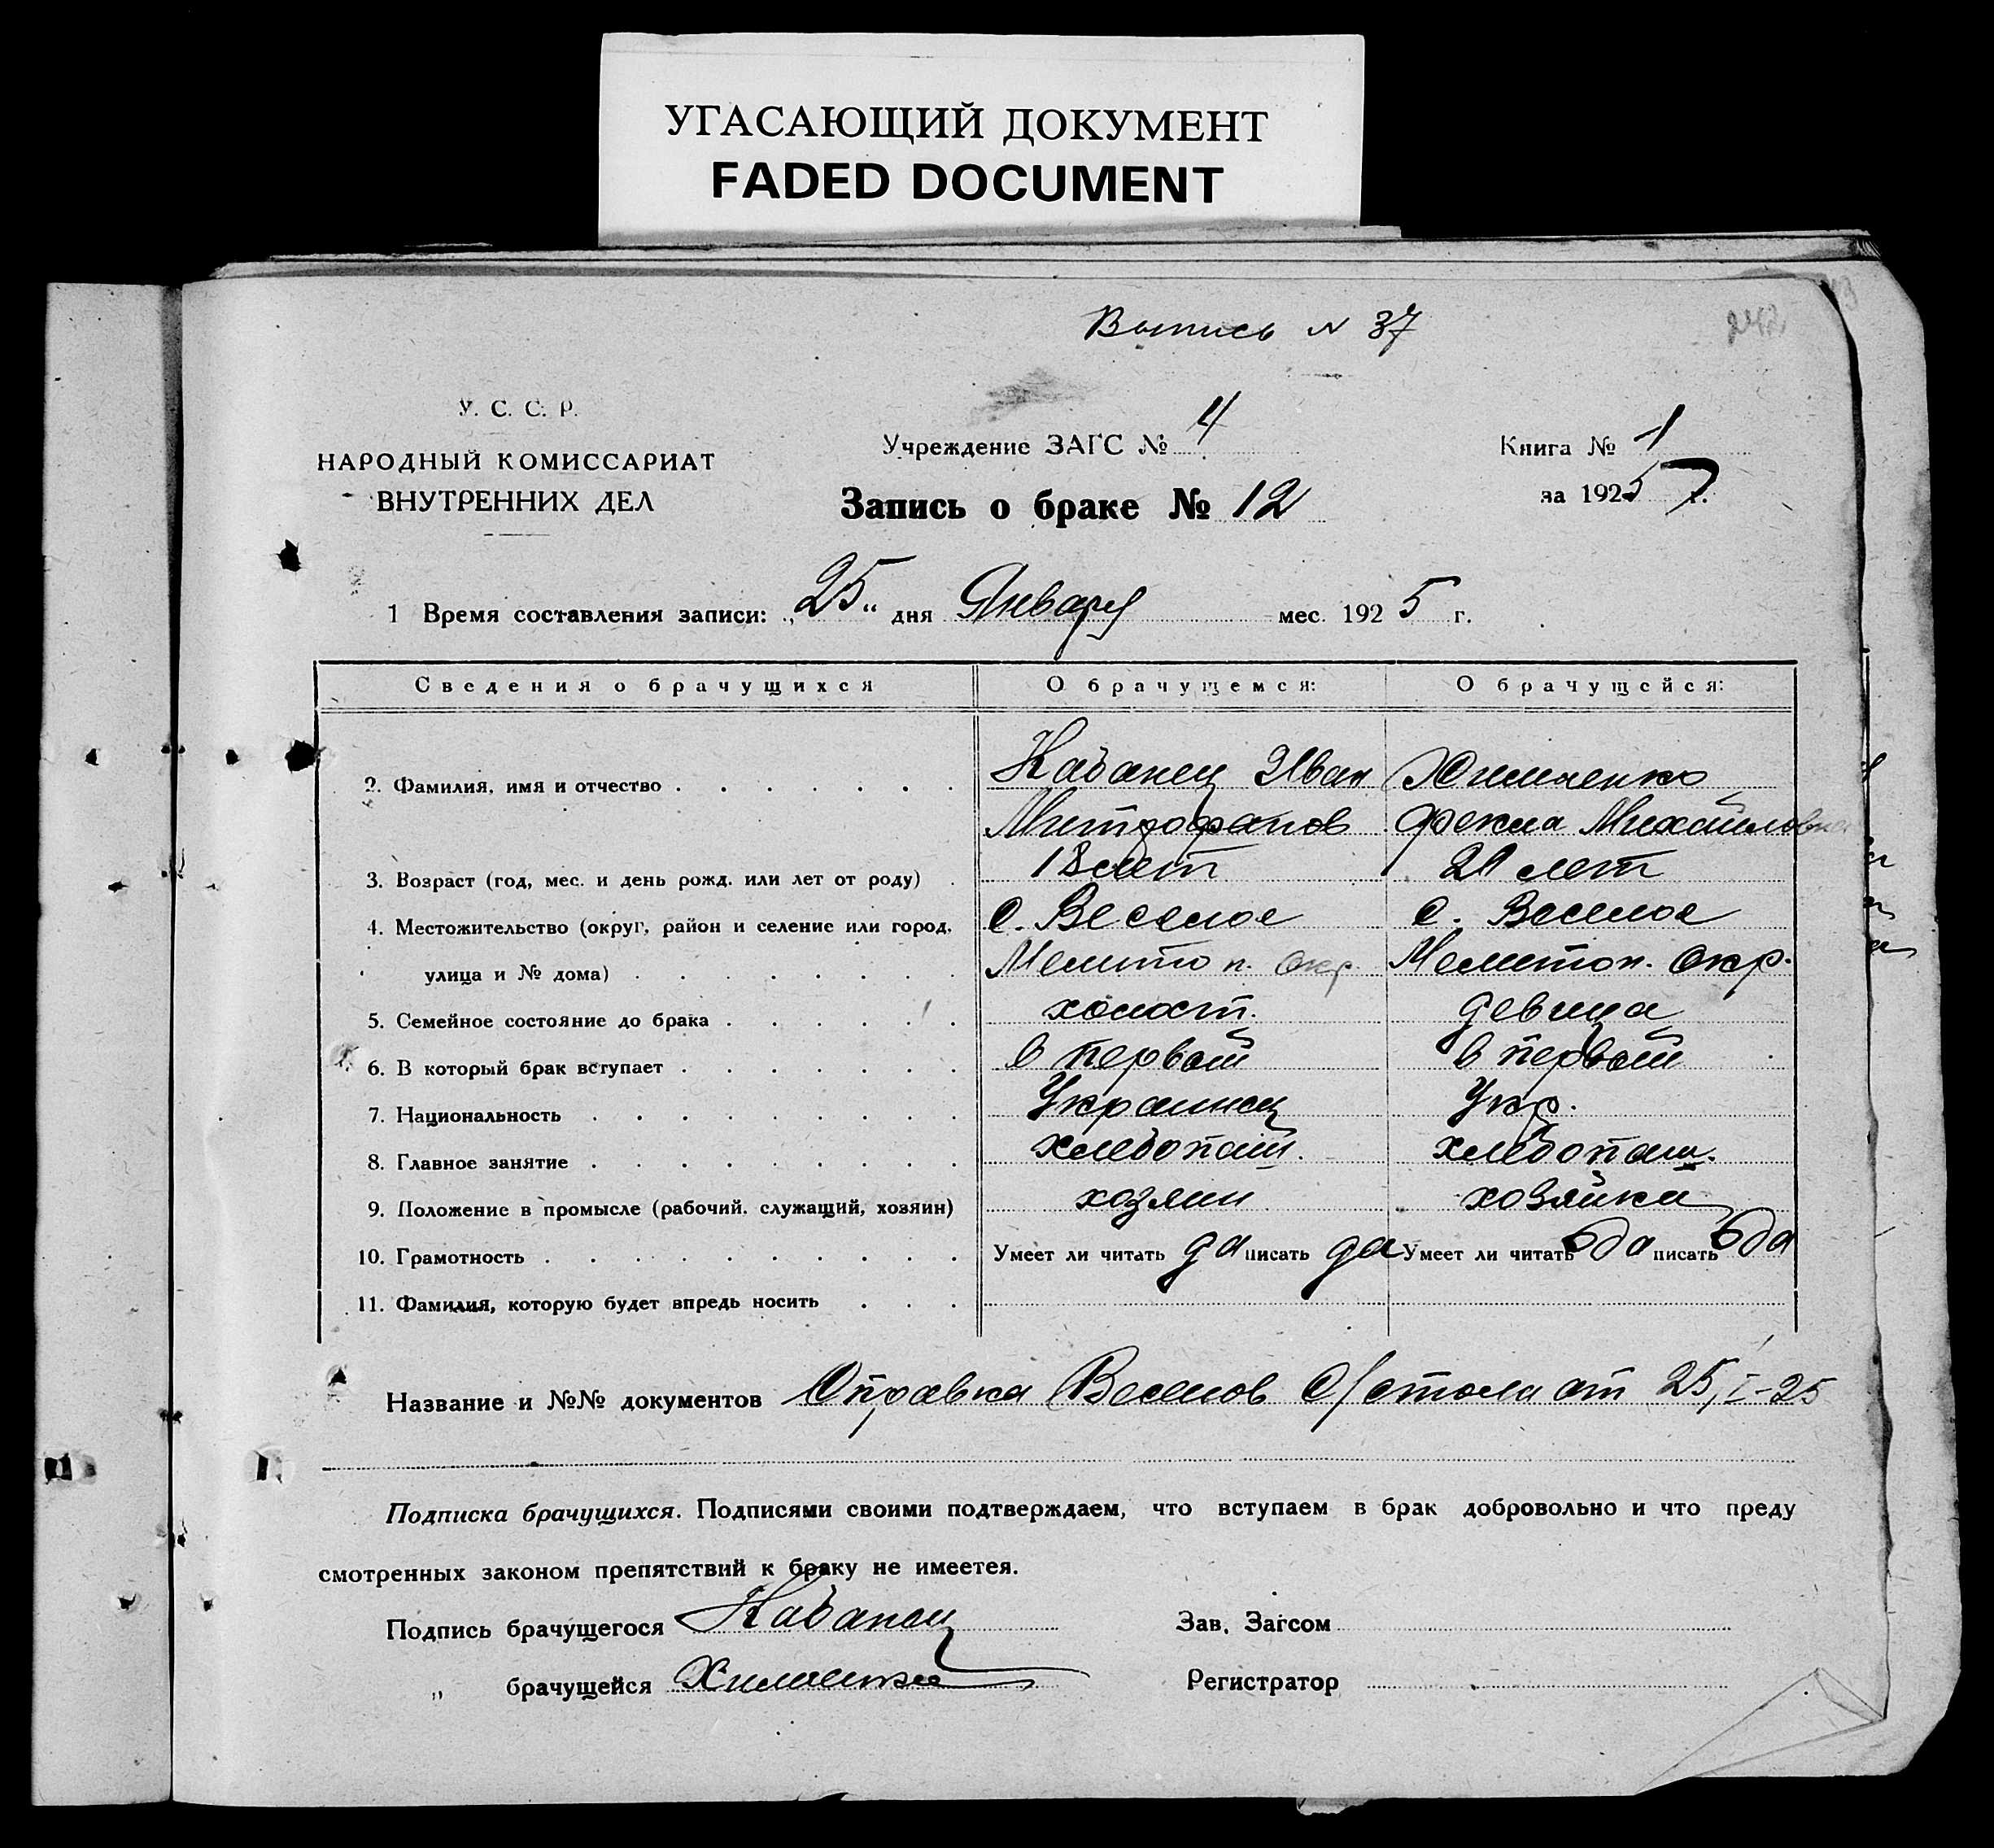 УГАСАЮЩИЙ ДОКУМЕНТ
FADED DOCUMENT
Выпись N 37
242
У. С. С. Р.
НАРОДНЫЙ КОМИССАРИАТ
ВНУТРЕННИХ ДЕЛ
Учреждение ЗАГС № 4
Запись о браке № 12
Книга № 1
за 1925 г.
1 Время составления записи: „25“ дня Января мес. 1925 г.
Сведения о брачущихся О брачущемся: О брачущейся:
2. Фамилия, имя и отчество Кабанец Иван
Митрофанов Фекла Михайловна
3. Возраст (год, мес. и день рожд. или лет от роду) 18 лет 21 лет
4. Местожительство (округ, район и селение или город, с. Веселое с. Веселое
улица и № дома) Мелитоп. окр. Мелитоп. окр.
5. Семейное состояние до брака холост. девица
6. В который брак вступает в первый в первый
7. Национальность Украинец Укр.
8. Главное занятие хлебопаш. хлебопаш.
9. Положение в промысле (рабочий, служащий, хозяин) хозяин хозяйка
10. Грамотность Умеет ли читать да писать да Умеет ли читать да писать да
11. Фамилия, которую будет впредь носить
Название и №№ документов Справка Веселов с/стола от 25/I-25
Подписка брачущихся. Подписями своими подтверждаем, что вступаем в брак добровольно и что преду
смотренных законом препятствий к браку не имеетея.
Подпись брачущегося Кабанец Зав. Загсом
„ брачущейся Регистратор